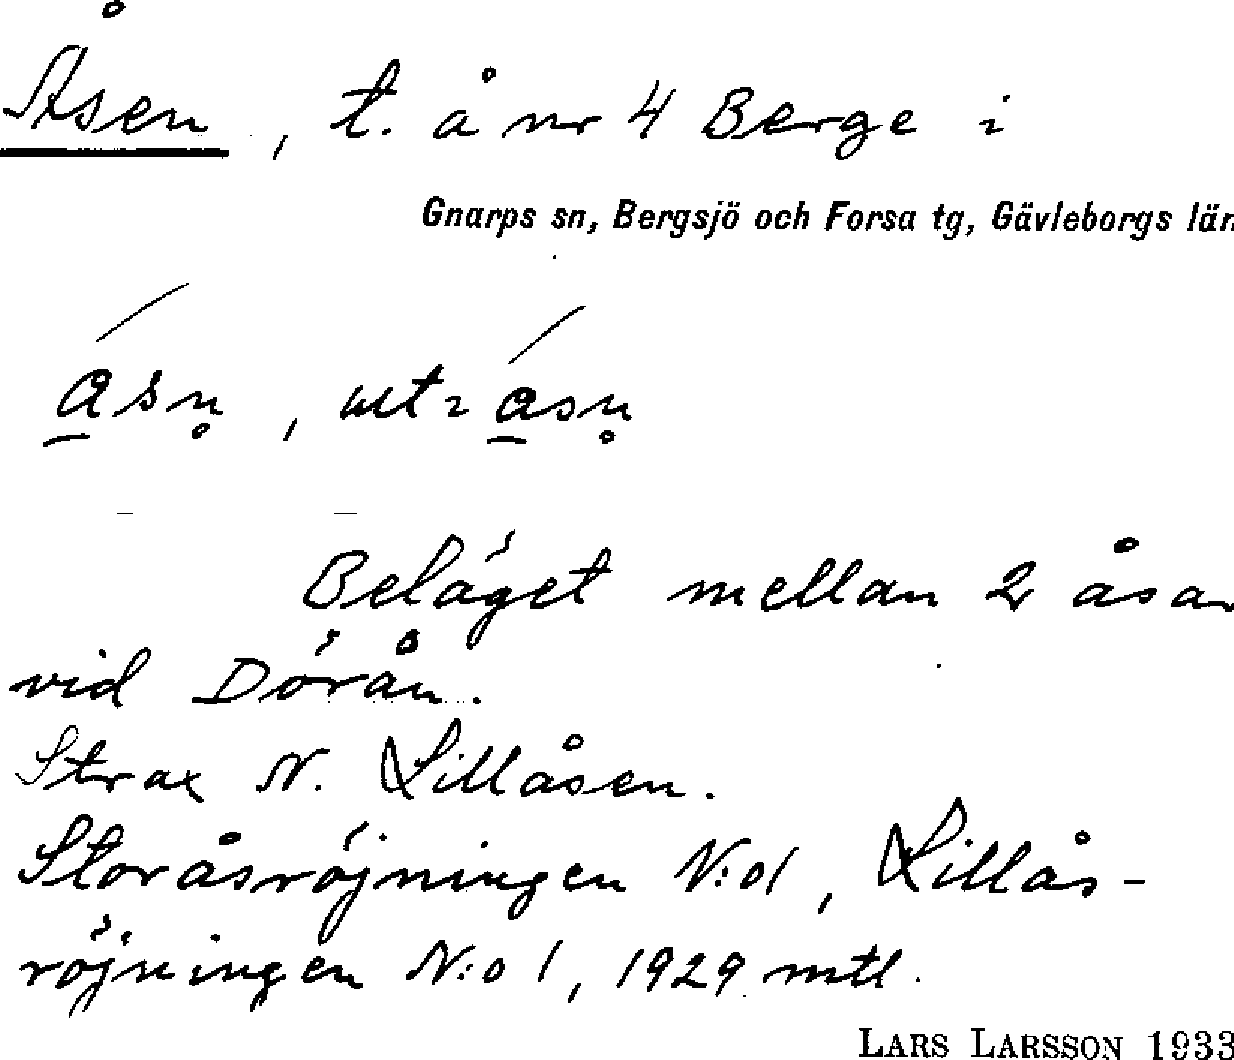 Åsen, t. å nr 4 Berge i
Gnarps sn, Bergsjö och Forsa tg, Gävleborgs län
Beläget mellan 2 åsar
vid Dörån.
Strax N. Lillåsen.
Storåsröjningen N:o 1, Lillås-
röjningen N:o 1, 1929 mtl.
LARS LARSSON 1933